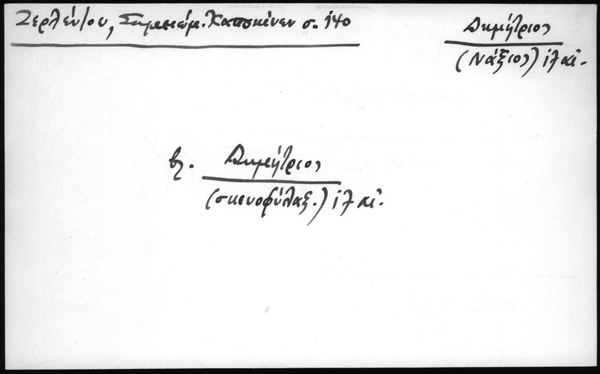 Ζερλέντου, Σημειώμ. Καποκένεν σ. 140
Δημήτριος
(Νάξιος) ιλ αἰ.
βλ. Δημήτριος
(σκευοφύλαξ.) ιλ αἰ.